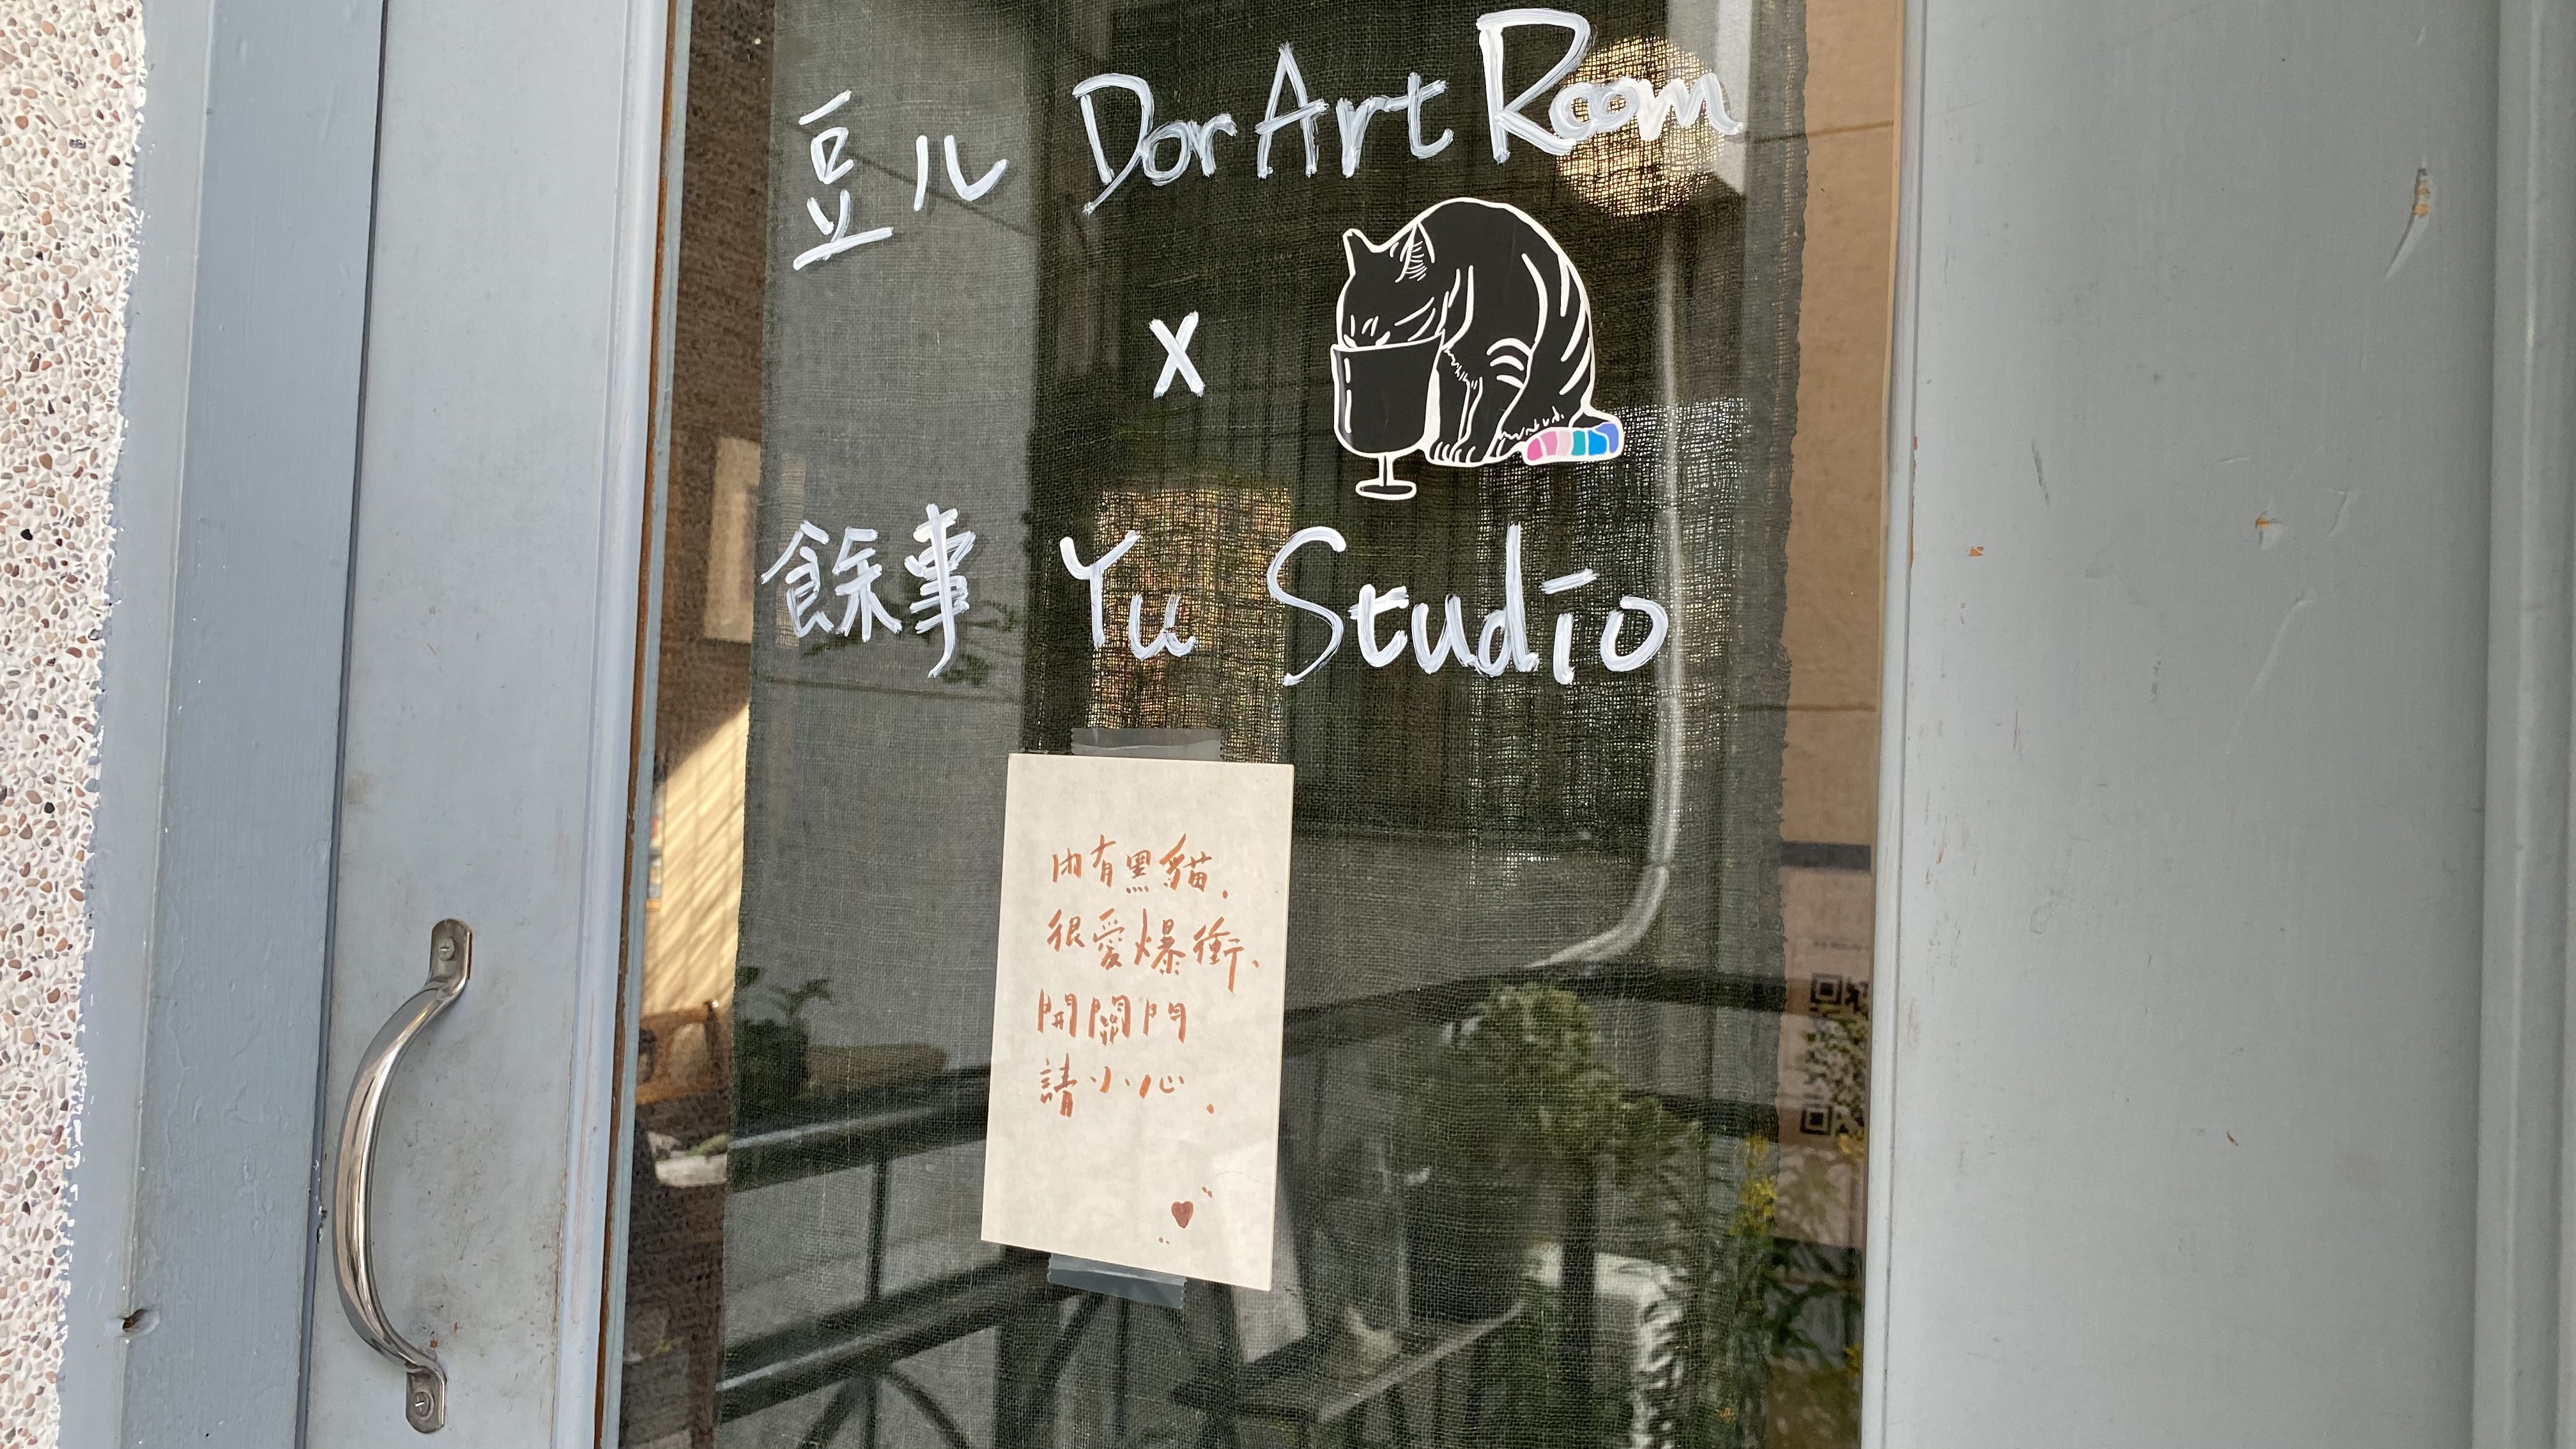 豆ル Dor Art Room
x
餘事 Yu Studio
內有黑貓.
很愛爆衝、
開關門
請小心.